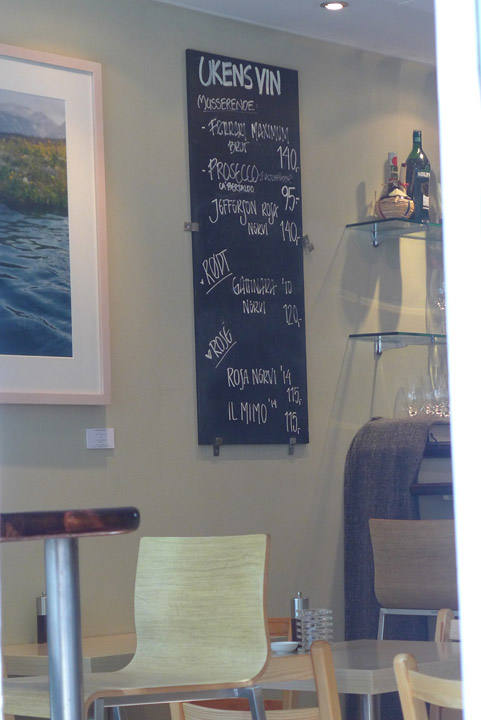 UKENS VIN
MUSSERENDE:
- FERRARI MAXIMUM
BRUT 140,-
- PROSECCO
CA'BERTALDO 95,-
JEFFERSON ROSA
NERVI 140,-
RØDT
GATTINARA '10
NERVI 120,-
♥ ROSÉ
ROSA NERVI '14
115,-
IL MIMO '14
115,-